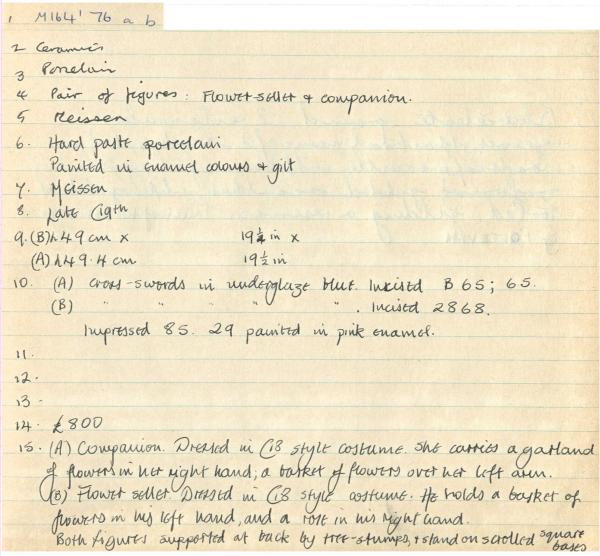 1 M164' 76 a b
2 Ceramics
3 Porcelain
4 Pair of figures: Flower-seller & companion.
5 Meissen
6. Hard paste porcelain
Painted in enamel colours & gilt
7. Meissen
8. Late C19th
9. (B) h49 cm x 19¼ in x
(A) h49.4 cm 19½ in
10. (A) Cross-swords in underglaze blue. Incised B65; 65.
(B) " " " " ". Incised 2868.
Impressed 85. 29 painted in pink enamel.
11.
12.
13.
14. £800
15. (A) Companion. Dressed in C18 style costume. She carries a garland
of flowers in her right hand; a basket of flowers over her left arm.
(B) Flower seller. Dressed in C18 style costume. He holds a basket of
flowers in his left hand, and a rose in his right hand.
Both figures supported at back by tree-stumps, & stand on scrolled square
bases